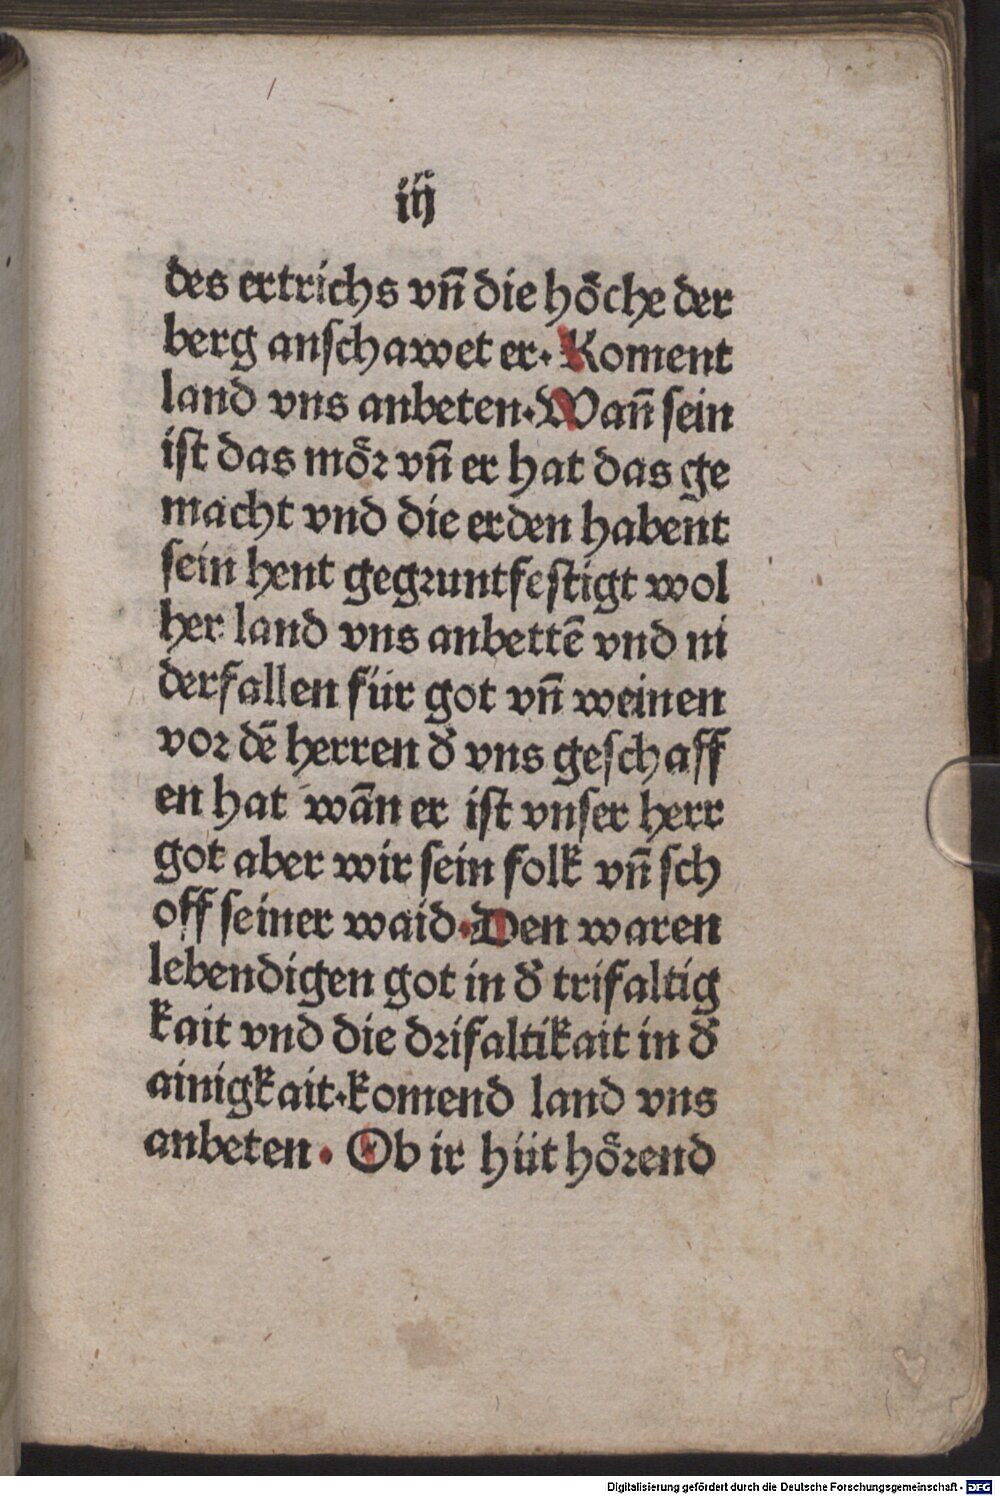 iij
des ertrichs vñ die hoͤche der
berg anschawet er. Koment
land vns anbeten. Wañ sein
ist das moͤr vñ er hat das ge
macht vnd die erden habent
sein hent gegruntfestigt wol
her land vns anbettē vnd ni
derfallen für got vñ weinen
vor dē herren d̕ vns geschaff
en hat wān er ist vnser herr
got aber wir sein folk vñ sch
off seiner waid. Den waren
lebendigen got in d̕ trifaltig
kait vnd die drifaltikait in d̕
ainigkait. komend land vns
anbeten. Ob ir hüt hoͤrend
Digitalisierung gefördert durch die Deutsche Forschungsgemeinschaft - DFG